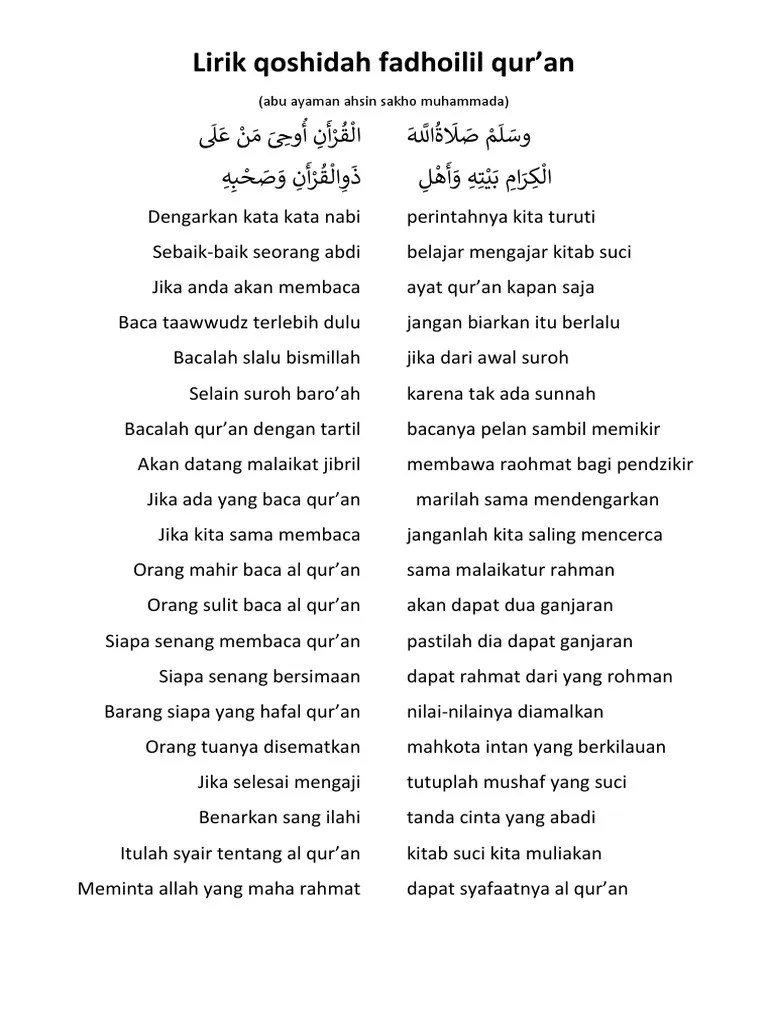 Lirik qoshidah fadhoilil qur’an
(abu ayaman ahsin sakho muhammada)
وسَلَمْ صَلَاةُاللَّهَ الْقُرْأَنِ أُوحِىَ مَنْ عَلَى
الْكِرَامِ بَيْتِهِ وَأَهْلِ ذَوِالْقُرْأَنِ وَصَحْبِهِ
Dengarkan kata kata nabi perintahnya kita turuti
Sebaik-baik seorang abdi belajar mengajar kitab suci
Jika anda akan membaca ayat qur’an kapan saja
Baca taawwudz terlebih dulu jangan biarkan itu berlalu
Bacalah slalu bismillah jika dari awal suroh
Selain suroh baro’ah karena tak ada sunnah
Bacalah qur’an dengan tartil bacanya pelan sambil memikir
Akan datang malaikat jibril membawa raohmat bagi pendzikir
Jika ada yang baca qur’an marilah sama mendengarkan
Jika kita sama membaca janganlah kita saling mencerca
Orang mahir baca al qur’an sama malaikatur rahman
Orang sulit baca al qur’an akan dapat dua ganjaran
Siapa senang membaca qur’an pastilah dia dapat ganjaran
Siapa senang bersimaan dapat rahmat dari yang rohman
Barang siapa yang hafal qur’an nilai-nilainya diamalkan
Orang tuanya disematkan mahkota intan yang berkilauan
Jika selesai mengaji tutuplah mushaf yang suci
Benarkan sang ilahi tanda cinta yang abadi
Itulah syair tentang al qur’an kitab suci kita muliakan
Meminta allah yang maha rahmat dapat syafaatnya al qur’an